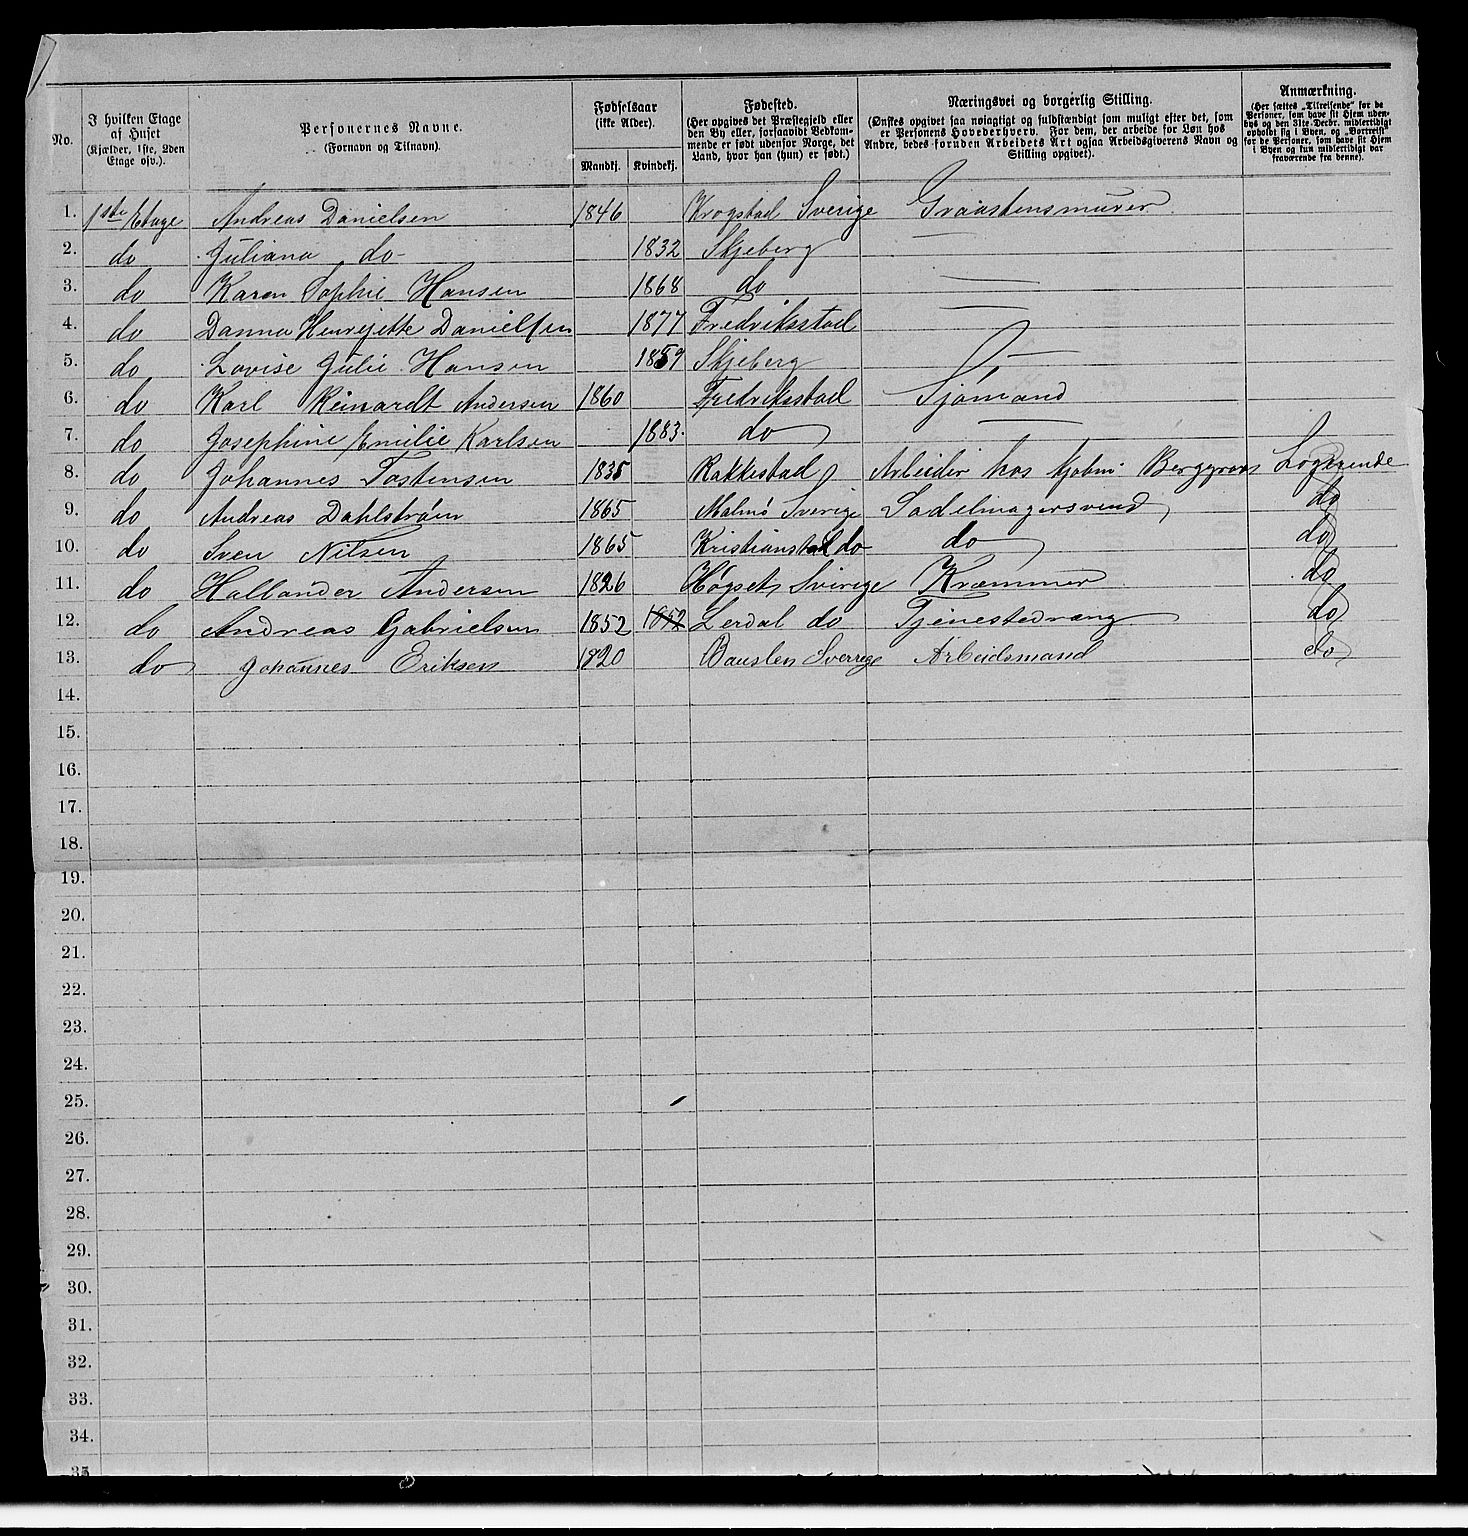 No. | I hvilken Etage af Huset (Kjælder, 1ste, 2den Etage osv.). | Personernes Navne. (Fornavn og Tilnavn). | Fødselsaar (ikke Alder). Mandkj. | Kvindekj. | Fødested. (Her opgives det Præstegjeld eller den By eller, forsaavidt Vedkommende er født udenfor Norge, det Land, hvor han (hun) er født.) | Næringsvei og borgerlig Stilling. (Ønskes opgivet saa nøiagtigt og fuldstændigt som muligt efter det, som er Personens Hovederhverv. For dem, der arbeide for Løn hos Andre, bedes foruden Arbeidets Art ogsaa Arbeidsgiverens Navn og Stilling opgivet). | Anmærkning. (Her sættes „Tilreisende“ for de Personer, som have sit Hjem udenbys og den 31te Decbr. midlertidigt opholdt sig i Byen, og „Bortreist“ for de Personer, som have sit Hjem i Byen og kun midlertidigt var fraværende fra denne).
1. 1ste Etage Andreas Danielsen 1846 Krogstad Sverige Graastensmurer
2. do Juliana do 1832 Skjeberg —
3. do Karen Sophie Hansen 1868 do —
4. do Danna Henrijette Danielsen 1877 Fredriksstad —
5. do Lovise Julie Hansen 1859 Skjeberg —
6. do Karl Reinardt Andersen 1860 Fredriksstad Sjømand
7. do Josephine Emilie Karlsen 1883. do —
8. do Johannes Tostensen 1835 Rakkestad Arbeider hos Kjøbm. Berggreen Logerende
9. do Andreas Dahlstrøm 1865 Malmø Sverige Sadelmagersvend do
10. do Sven Nilsen 1865 Kristianstad do do do
11. do Hallander Andersen 1826 Høgset Sverige Kræmmer do
12. do Andreas Gabrielsen 1852 1852 Lerdal do Tjenestedræng do
13. do Johannes Eriksen 1820 Sverrige Arbeidsmand do
14.
15.
16.
17.
18.
19.
20.
21.
22.
23.
24.
25.
26.
27.
28.
29.
30.
31.
32.
33.
34.
35